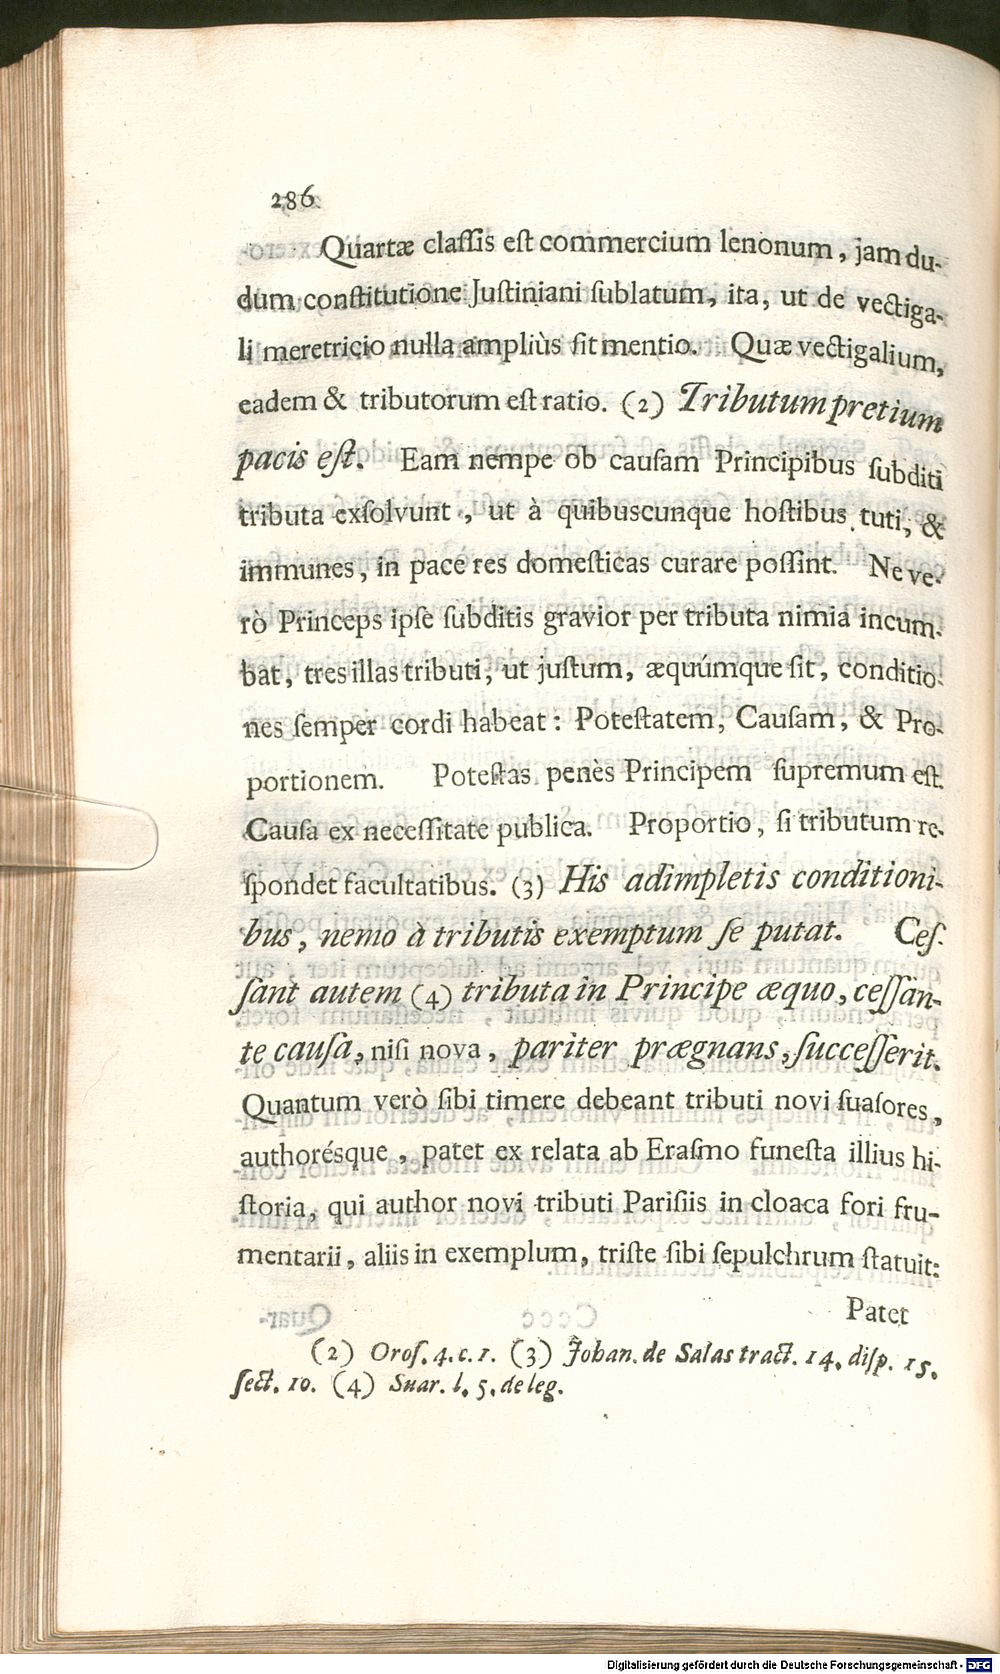 286
Quartæ claſſis eſt commercium lenonum, jam du-
dum conſtitutione Juſtiniani ſublatum, ita, ut de vectiga-
li meretricio nulla ampliùs ſit mentio. Quæ vectigalium,
eadem & tributorum eſt ratio. (2) Tributum pretium
pacis eſt. Eam nempe ob cauſam Principibus ſubditi
tributa exſolvunt, ut à quibuscunque hoſtibus tuti, &
immunes, in pace res domeſticas curare poſſint. Ne ve-
rò Princeps ipſe ſubditis gravior per tributa nimia incum-
bat, tres illas tributi, ut juſtum, æquúmque ſit, conditio-
nes ſemper cordi habeat: Poteſtatem, Cauſam, & Pro-
portionem. Poteſtas penès Principem ſupremum eſt.
Cauſa ex neceſſitate publica. Proportio, ſi tributum re-
ſpondet facultatibus. (3) His adimpletis conditioni-
bus, nemo à tributis exemptum ſe putat. Ceſ-
ſant autem (4) tributa in Principe æquo, ceſſan-
te cauſa, niſi nova, pariter prægnans, ſucceſſerit.
Quantum verò ſibi timere debeant tributi novi ſuaſores,
authorésque, patet ex relata ab Eraſmo funeſta illius hi-
ſtoria, qui author novi tributi Pariſiis in cloaca fori fru-
mentarii, aliis in exemplum, triſte ſibi ſepulchrum ſtatuit:
Patet
(2) Oroſ. 4. c. 1. (3) Johan. de Salas tract. 14. diſp. 15.
ſect. 10. (4) Suar. l. 5. de leg.
Digitalisierung gefördert durch die Deutsche Forschungsgemeinschaft - DFG